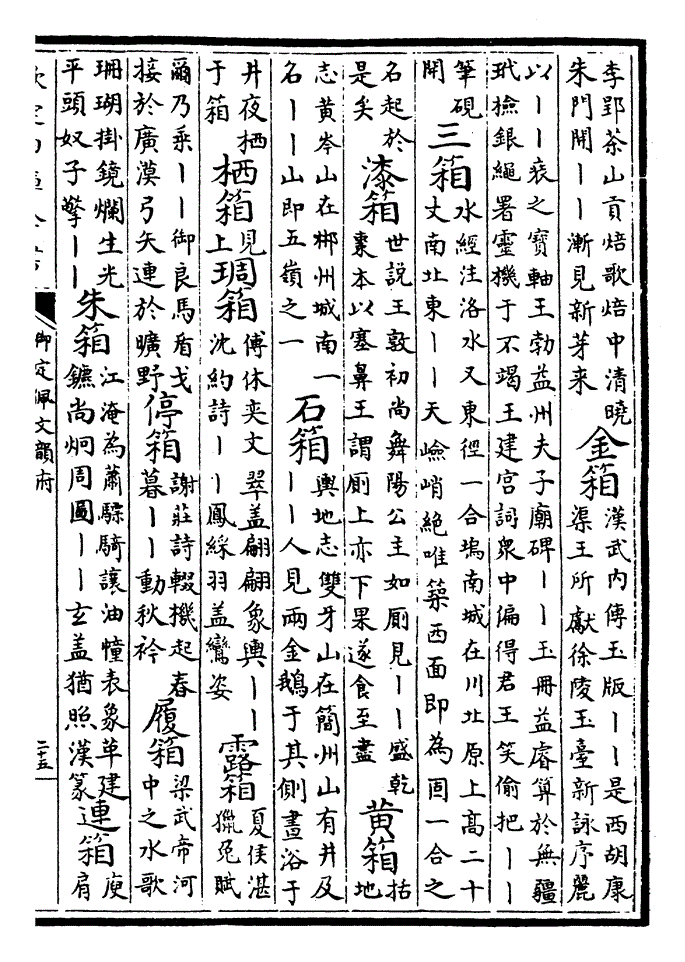 李郢茶山貢焙歌焙中清曉
朱門開丨丨漸見新芽來
金箱
漢武内傳玉版丨丨是西胡康
渠王所獻徐陵玉臺新詠序麗
以丨丨裝之寶軸王勃益州夫子廟碑丨丨玉冊益睿算於無疆
玳檢銀繩署靈機于不竭王建宮詞衆中偏得君王笑偷把丨丨
筆硯
開
三箱
水經注洛水又東徑一合塢南城在川北原上高二十
丈南北東丨丨天嶮峭絕唯築西面即為固一合之
名起於
是矣
漆箱
世說王敦初尚舞陽公主如厠見丨丨盛乾
棗本以塞鼻王謂厠上亦下果遂食至盡
黄箱
括
地
志黄岑山在郴州城南一
名丨丨山即五嶺之一
石箱
輿地志雙牙山在簡州山有井及
丨丨人見兩金鵝于其側晝浴于
井夜栖
于箱
栖箱
見
上
琱箱
傅休奕文翠盖翩翩象輿丨丨
沈約詩丨丨鳳綵羽盖鸞姿
露箱
夏侯湛
獵兎賦
爾乃乘丨丨御良馬盾戈
接於廣漠弓矢連於曠野
停箱
謝莊詩輟機起春
暮丨丨動秋衿
履箱
梁武帝河
中之水歌
珊瑚掛鏡爛生光
平頭奴子擎丨丨
朱箱
江淹為蕭驃騎讓油幢表象革建
鑣尚炯周圖丨丨玄盖猶照漢篆
連箱
庾
肩
欽定四庫全書
御定佩文韻府
二十五